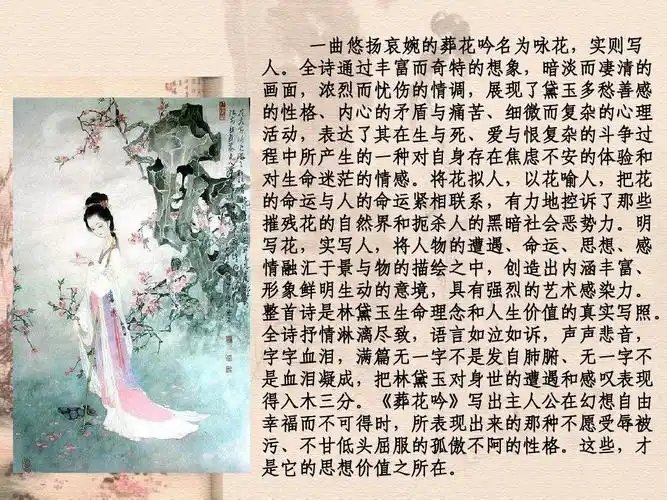 一曲悠扬哀婉的葬花吟名为咏花，实则写
人。全诗通过丰富而奇特的想象，暗淡而凄清的
画面，浓烈而忧伤的情调，展现了黛玉多愁善感
的性格、内心的矛盾与痛苦、细微而复杂的心理
活动，表达了其在生与死、爱与恨复杂的斗争过
程中所产生的一种对自身存在焦虑不安的体验和
对生命迷茫的情感。将花拟人，以花喻人，把花
的命运与人的命运紧相联系，有力地控诉了那些
摧残花的自然界和扼杀人的黑暗社会恶势力。明
写花，实写人，将人物的遭遇、命运、思想、感
情融汇于景与物的描绘之中，创造出内涵丰富、
形象鲜明生动的意境，具有强烈的艺术感染力。
整首诗是林黛玉生命理念和人生价值的真实写照。
全诗抒情淋漓尽致，语言如泣如诉，声声悲音，
字字血泪，满篇无一字不是发自肺腑、无一字不
是血泪凝成，把林黛玉对身世的遭遇和感叹表现
得入木三分。《葬花吟》写出主人公在幻想自由
幸福而不可得时，所表现出来的那种不愿受辱被
污、不甘低头屈服的孤傲不阿的性格。这些，才
是它的思想价值之所在。